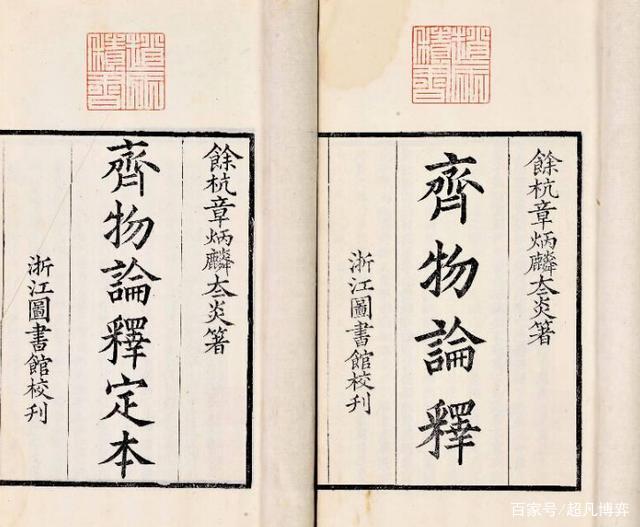 餘杭章炳麟夳炎箸
齊物論釋
浙江圖書館校刊
餘杭章炳麟夳炎箸
齊物論釋定本
浙江圖書館校刊
百家号/超凡博弈